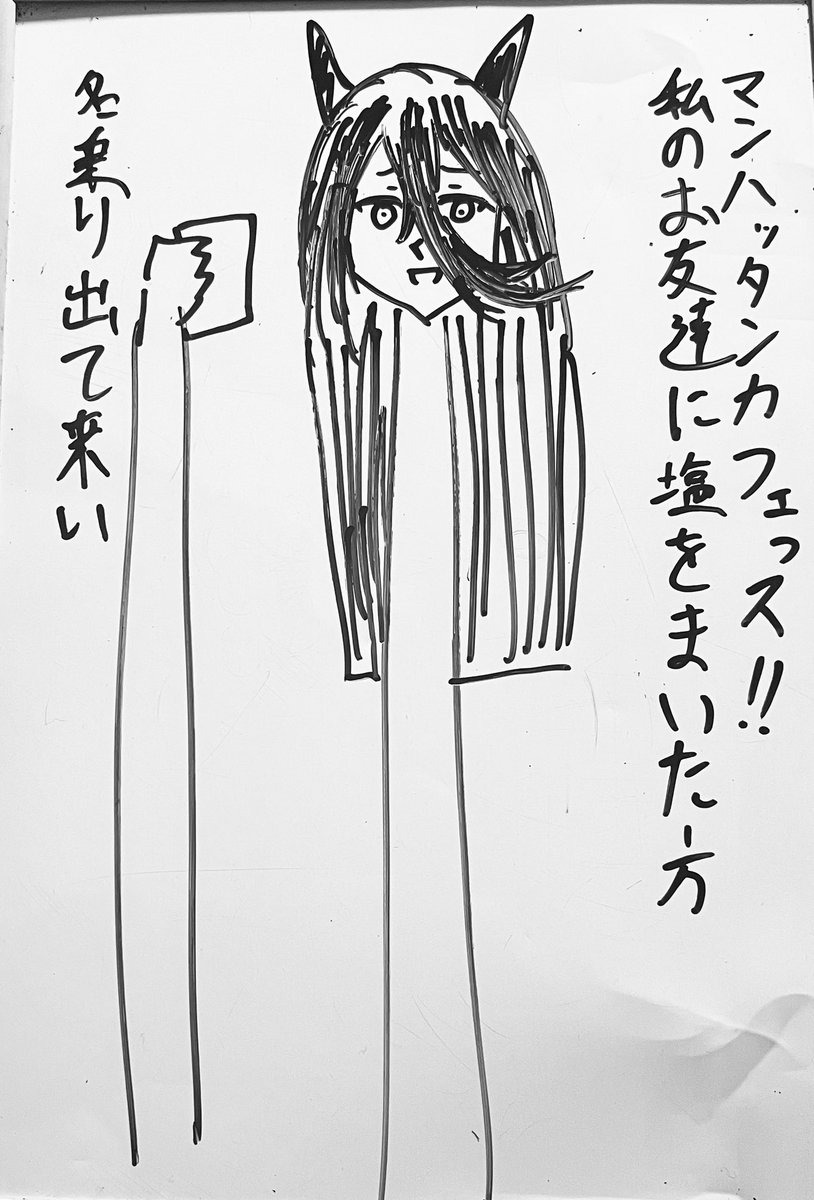 マンハッタンカフェっス!!
私のお友達に塩をまいた方
名乗り出て来い